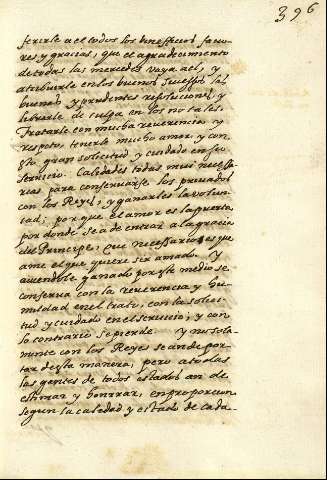 396
ferirle a el todos los beneficios favo-
res y gracias, que el agradecimiento
de todas las mercedes vaya a el, y
atribuirle en los buenos sucessos las
buenas y prudentes resoluciones, y
librarle de culpa en los no tales.
Tratarle con mucha reverencia y
respeto tenerle mucho amor, y con
gran solicitud y cuidado en su
servicio. Calidades todas mui necessa-
rias para conservarse los privados
con los Reyes, y ganarles la volun-
tad; por que el amor es la puerta
por donde se a de entrar a la gracia
del Principe, que necessario es que
ame el que quiere ser amado. Y
aviendole ganado por este medio se
conserva con la reverencia y hu-
mildad en el trato, con la solici-
tud y cuidado en el servicio; y con
lo contrario se pierde. Y no sola-
mente con los Reyes se an de por-
tar desta manera, pero a todas
las gentes de todos estados an de
estimar y honrrar, en proporcion
segun la calidad y estado de cada-